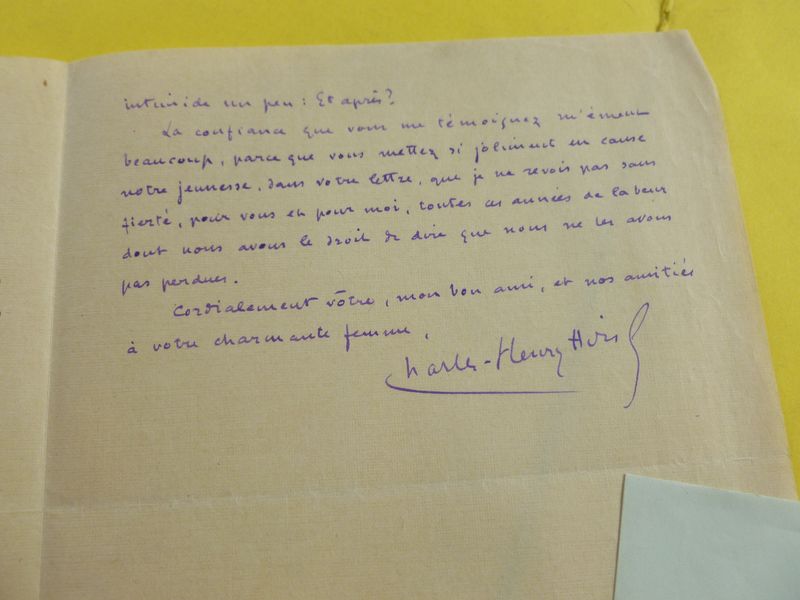 intimide un peu : Et après ?
La confiance que vous me témoignez m'émeut
beaucoup, parce que vous mettez si joliment en cause
notre jeunesse, dans votre lettre, que je ne revois pas sans
fierté, pour vous et pour moi, toutes ces années de labeur
dont nous avons le droit de dire que nous ne les avons
pas perdues.
Cordialement vôtre, mon bon ami, et nos amitiés
à votre charmante femme.
Charles-Henry Hirsch